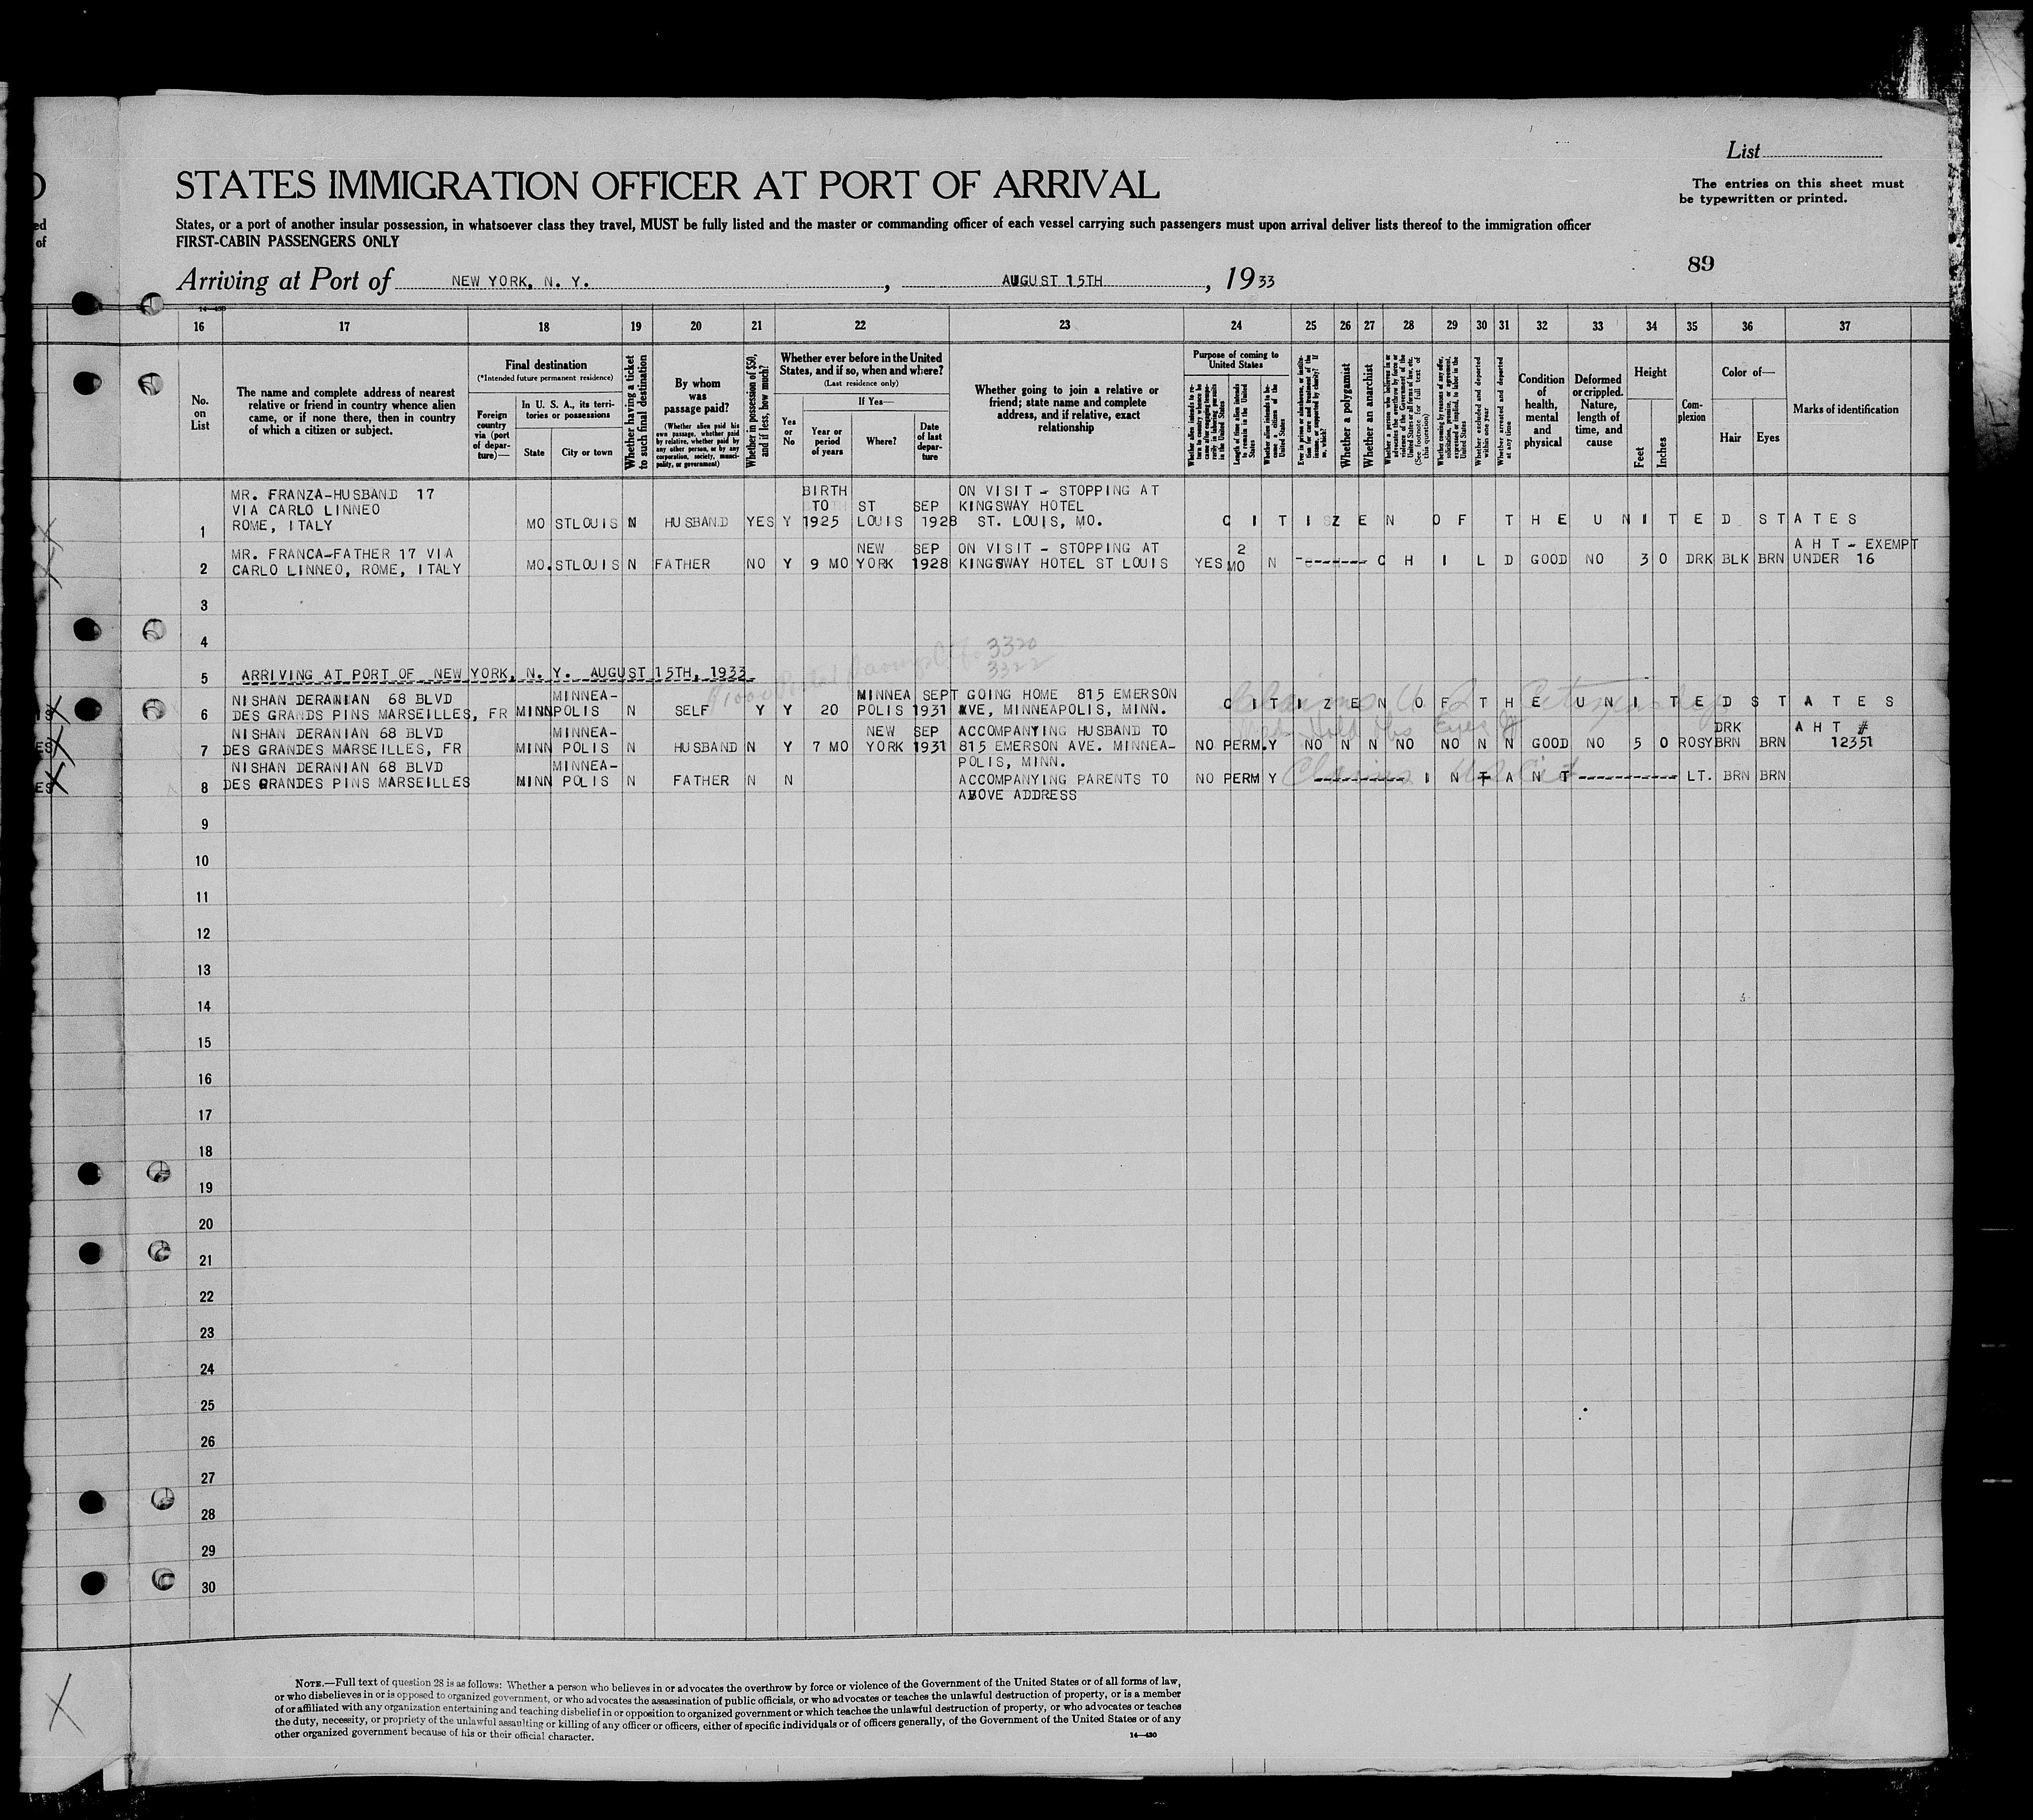 List
The entries on this sheet must
be typewritten or printed.
STATES IMMIGRATION OFFICER AT PORT OF ARRIVAL
States, or a port of another insular possession, in whatsoever class they travel, MUST be fully listed and the master or commanding officer of each vessel carrying such passengers must upon arrival deliver lists thereof to the immigration officer
FIRST-CABIN PASSENGERS ONLY
89
Arriving at Port of NEW YORK, N. Y. , AUGUST 15TH , 1933
16 17 18 19 20 21 22 23 24 25 26 27 28 29 30 31 32 33 34 35 36 37
No. on List
The name and complete address of nearest
relative or friend in country whence alien
came, or if none there, then in country
of which a citizen or subject.
Final destination
(*Intended future permanent residence)
Foreign country via (port of departure)—
In U. S. A., its territories or possessions
State
City or town
Whether having a ticket to such final destination
By whom was passage paid?
(Whether alien paid his own passage, whether paid by relative, whether paid by any other person, or by any corporation, society, municipality, or government)
Whether in possession of $50, and if less, how much?
Whether ever before in the United States, and if so, when and where?
(Last residence only)
Yes or No
If Yes—
Year or period of years
Where?
Date of last departure
Whether going to join a relative or
friend; state name and complete
address, and if relative, exact
relationship
Purpose of coming to United States
Length of time alien intends to remain in the United States
Whether alien intends to become a citizen of the United States
Whether a polygamist
Whether an anarchist
(See footnote for full text of this question)
Whether excluded and deported within one year
Whether arrested and deported at any time
Condition of health, mental and physical
Deformed or crippled. Nature, length of time, and cause
Height
Feet
Inches
Complexion
Color of—
Hair
Eyes
Marks of identification
1 MR. FRANZA-HUSBAND 17 VIA CARLO LINNEO ROME, ITALY MO STLOUIS N HUSBAND YES Y BIRTH TO 1925 ST LOUIS SEP 1928 ON VISIT - STOPPING AT KINGSWAY HOTEL ST. LOUIS, MO. C I T I Z E N O F T H E U N I T E D S T A T E S
2 MR. FRANCA-FATHER 17 VIA CARLO LINNEO, ROME, ITALY MO. STLOUIS N FATHER NO Y 9 MO NEW YORK SEP 1928 ON VISIT - STOPPING AT KINGSWAY HOTEL ST LOUIS YES 2 MO N ------- C H I L D GOOD NO 3 0 DRK BLK BRN A H T - EXEMPT UNDER 16
3
4
3320
3322
5 ARRIVING AT PORT OF NEW YORK, N. Y. AUGUST 15TH, 1933
6 NISHAN DERANIAN 68 BLVD DES GRANDS PINS MARSEILLES, FR MINN MINNEA-POLIS N SELF Y Y 20 MINNEA POLIS SEPT 1931 GOING HOME 815 EMERSON AVE, MINNEAPOLIS, MINN. C I T I Z E N O F T H E U N I T E D S T A T E S
7 NISHAN DERANIAN 68 BLVD DES GRANDES MARSEILLES, FR MINN MINNEA-POLIS N HUSBAND N Y 7 MO NEW YORK SEP 1931 ACCOMPANYING HUSBAND TO 815 EMERSON AVE. MINNEA-POLIS, MINN. NO PERM. Y NO N N NO NO N N GOOD NO 5 0 ROSY DRK BRN BRN A H T # 12351
8 NISHAN DERANIAN 68 BLVD DES GRANDES PINS MARSEILLES MINN MINNEA-POLIS N FATHER N N ACCOMPANYING PARENTS TO ABOVE ADDRESS NO PERM Y ---------- I N T A N T ----------- LT. BRN BRN
9
10
11
12
13
14
15
16
17
18
19
20
21
22
23
24
25
26
27
28
29
30
NOTE.—Full text of question 28 is as follows: Whether a person who believes in or advocates the overthrow by force or violence of the Government of the United States or of all forms of law,
or who disbelieves in or is opposed to organized government, or who advocates the assassination of public officials, or who advocates or teaches the unlawful destruction of property, or is a member
of or affiliated with any organization entertaining and teaching disbelief in or opposition to organized government or which teaches the unlawful destruction of property, or who advocates or teaches
the duty, necessity, or propriety of the unlawful assaulting or killing of any officer or officers, either of specific individuals or of officers generally, of the Government of the United States or of any
other organized government because of his or their official character.
14—430